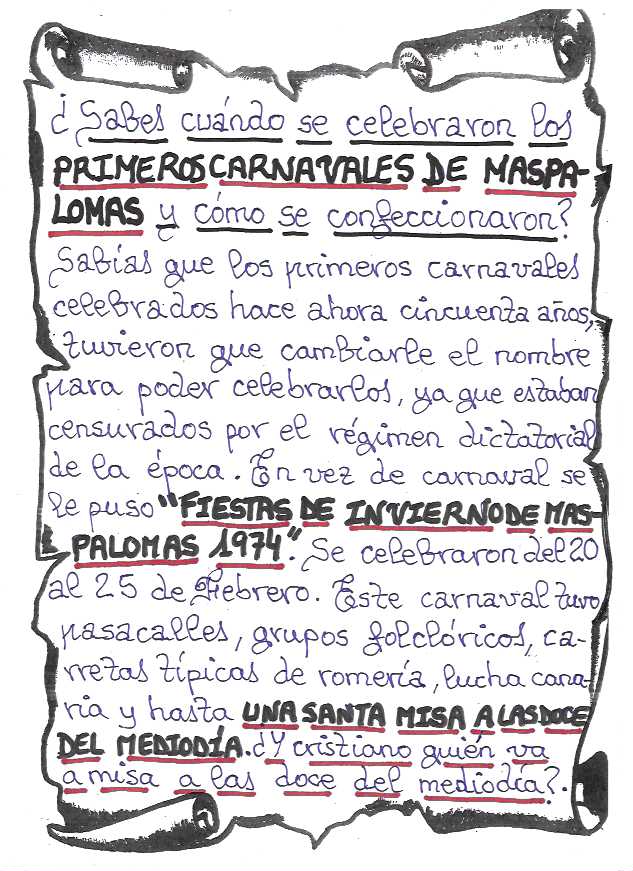 ¿Sabes cuándo se celebraron los
PRIMEROS CARNAVALES DE MASPA-
LOMAS y cómo se confeccionaron?
Sabías que los primeros carnavales
celebrados hace ahora cincuenta años,
tuvieron que cambiarle el nombre
para poder celebrarlos, ya que estaban
censurados por el régimen dictatorial
de la época. En vez de carnaval se
le puso "FIESTAS DE INVIERNO DE MAS-
PALOMAS 1974". Se celebraron del 20
al 25 de Febrero. Este carnaval tuvo
pasacalles, grupos folclóricos, ca-
rretas típicas de romería, lucha cana-
ria y hasta UNA SANTA MISA A LAS DOCE
DEL MEDIODÍA. ¿Y cristiano quién va
a misa a las doce del mediodía?.